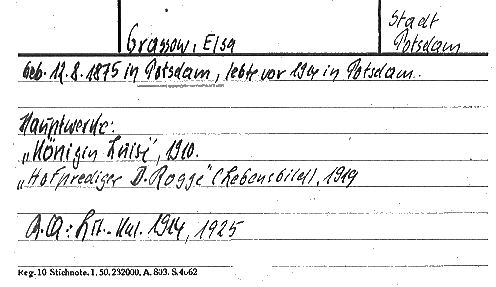 Stadt
Grassow, Elsa Potsdam
Geb. 12.8.1875 in Potsdam, lebte vor 1914 in Potsdam.
Hauptwerke:
„Königin Luise", 1910.
„Hofprediger D. Rogge" (Lebensbild), 1919
A.Q.: Lit.-Kal. 1914, 1925
Reg. 10 Stichnote. 1. 50. 232000. A. 803. S. 4062